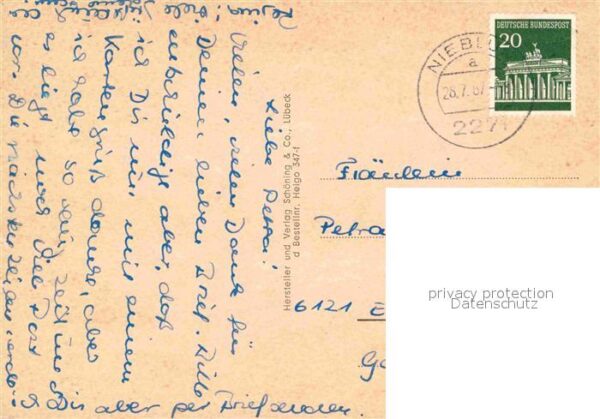 Regina: viele
Liebe Petra!
Vielen, vielen Dank für
Deinen lieben Brief. Bitte
entschuldige aber, daß
ich Dir nur mit einem
Kartengruß danke, aber
ich habe so wenig Zeit und
es liegt noch viel Post
vor. Die nächsten Zeilen werde
ich Dir aber per Brief senden.
Hersteller und Verlag Schöning & Co., Lübeck
d Bestellnr. Helgo 347-f
DEUTSCHE BUNDESPOST
20
NIEBÜLL
a
28.7.67
2271
Fräulein
Petra
6121 E
privacy protection
Datenschutz